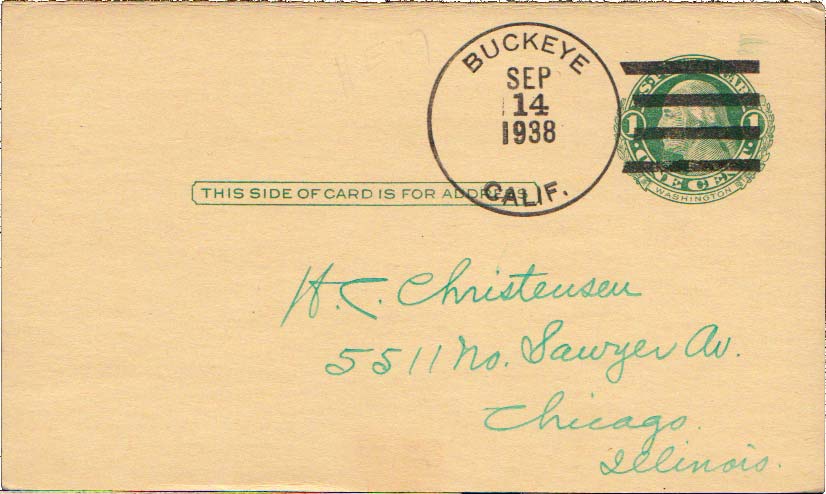 BUCKEYE
SEP
14
1938
CALIF.
1 1
ONE CENT
WASHINGTON
THIS SIDE OF CARD IS FOR ADDRESS
H. C. Christensen
5511 No. Sawyer Av.
Chicago
Illinois.